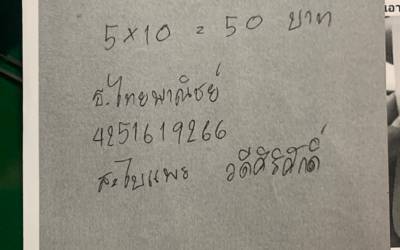 5×10 = 50 บาท
ธ.ไทยพาณิชย์
4251619266
สไบแพร วดีศิริศักดิ์
เอา